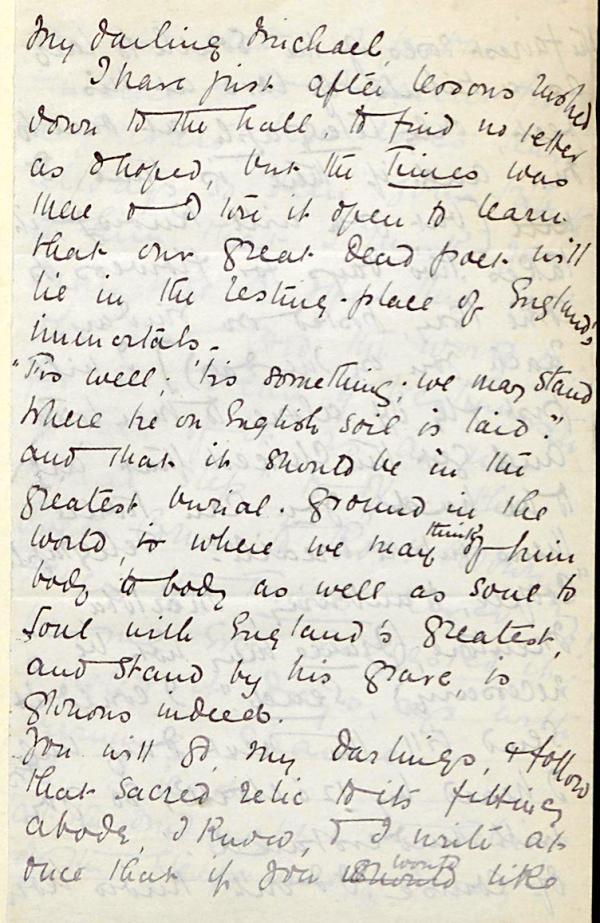 My darling Michael,
I have just after lessons rushed
down to the hall to find no letter
as I hoped, but the Times was
there & I tore it open to learn
that our great dead poet will
lie in the resting-place of England's
immortals.
"Tis well; 'tis something; we may stand
Where he on English soil is laid."
and that it should be in the
greatest burial-ground in the
world, where we may think of him
body to body as well as soul to
soul with England's greatest,
and stand by his grave, is
glorious indeed.
You will go, my darlings, & follow
that sacred relic to its fitting
abode, I know, & I write at
once that if you would like